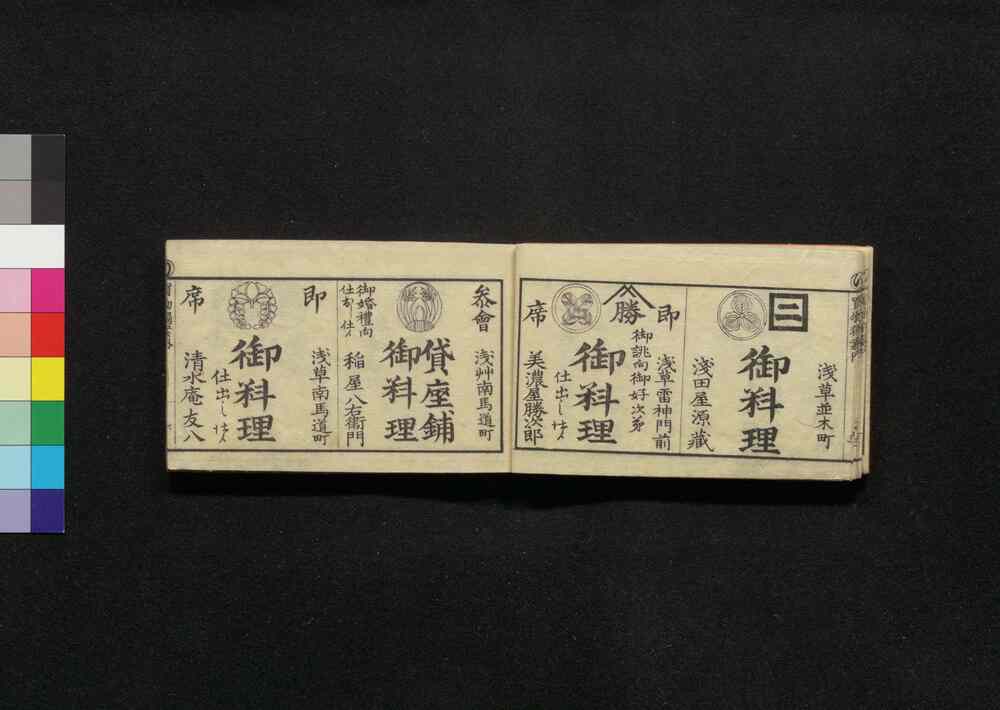 浅草並木町
二
御料理
淺田屋源藏
即
席
浅草雷神門前
御誂向御好次第
勝
御料理
仕出し仕候
美濃屋勝次郎
参會
浅艸南馬道町
貸座鋪
御料理
御婚禮向
仕出し仕候
稲屋八右衛門
即
席
浅草南馬道町
御料理
仕出し仕候
清水庵友八